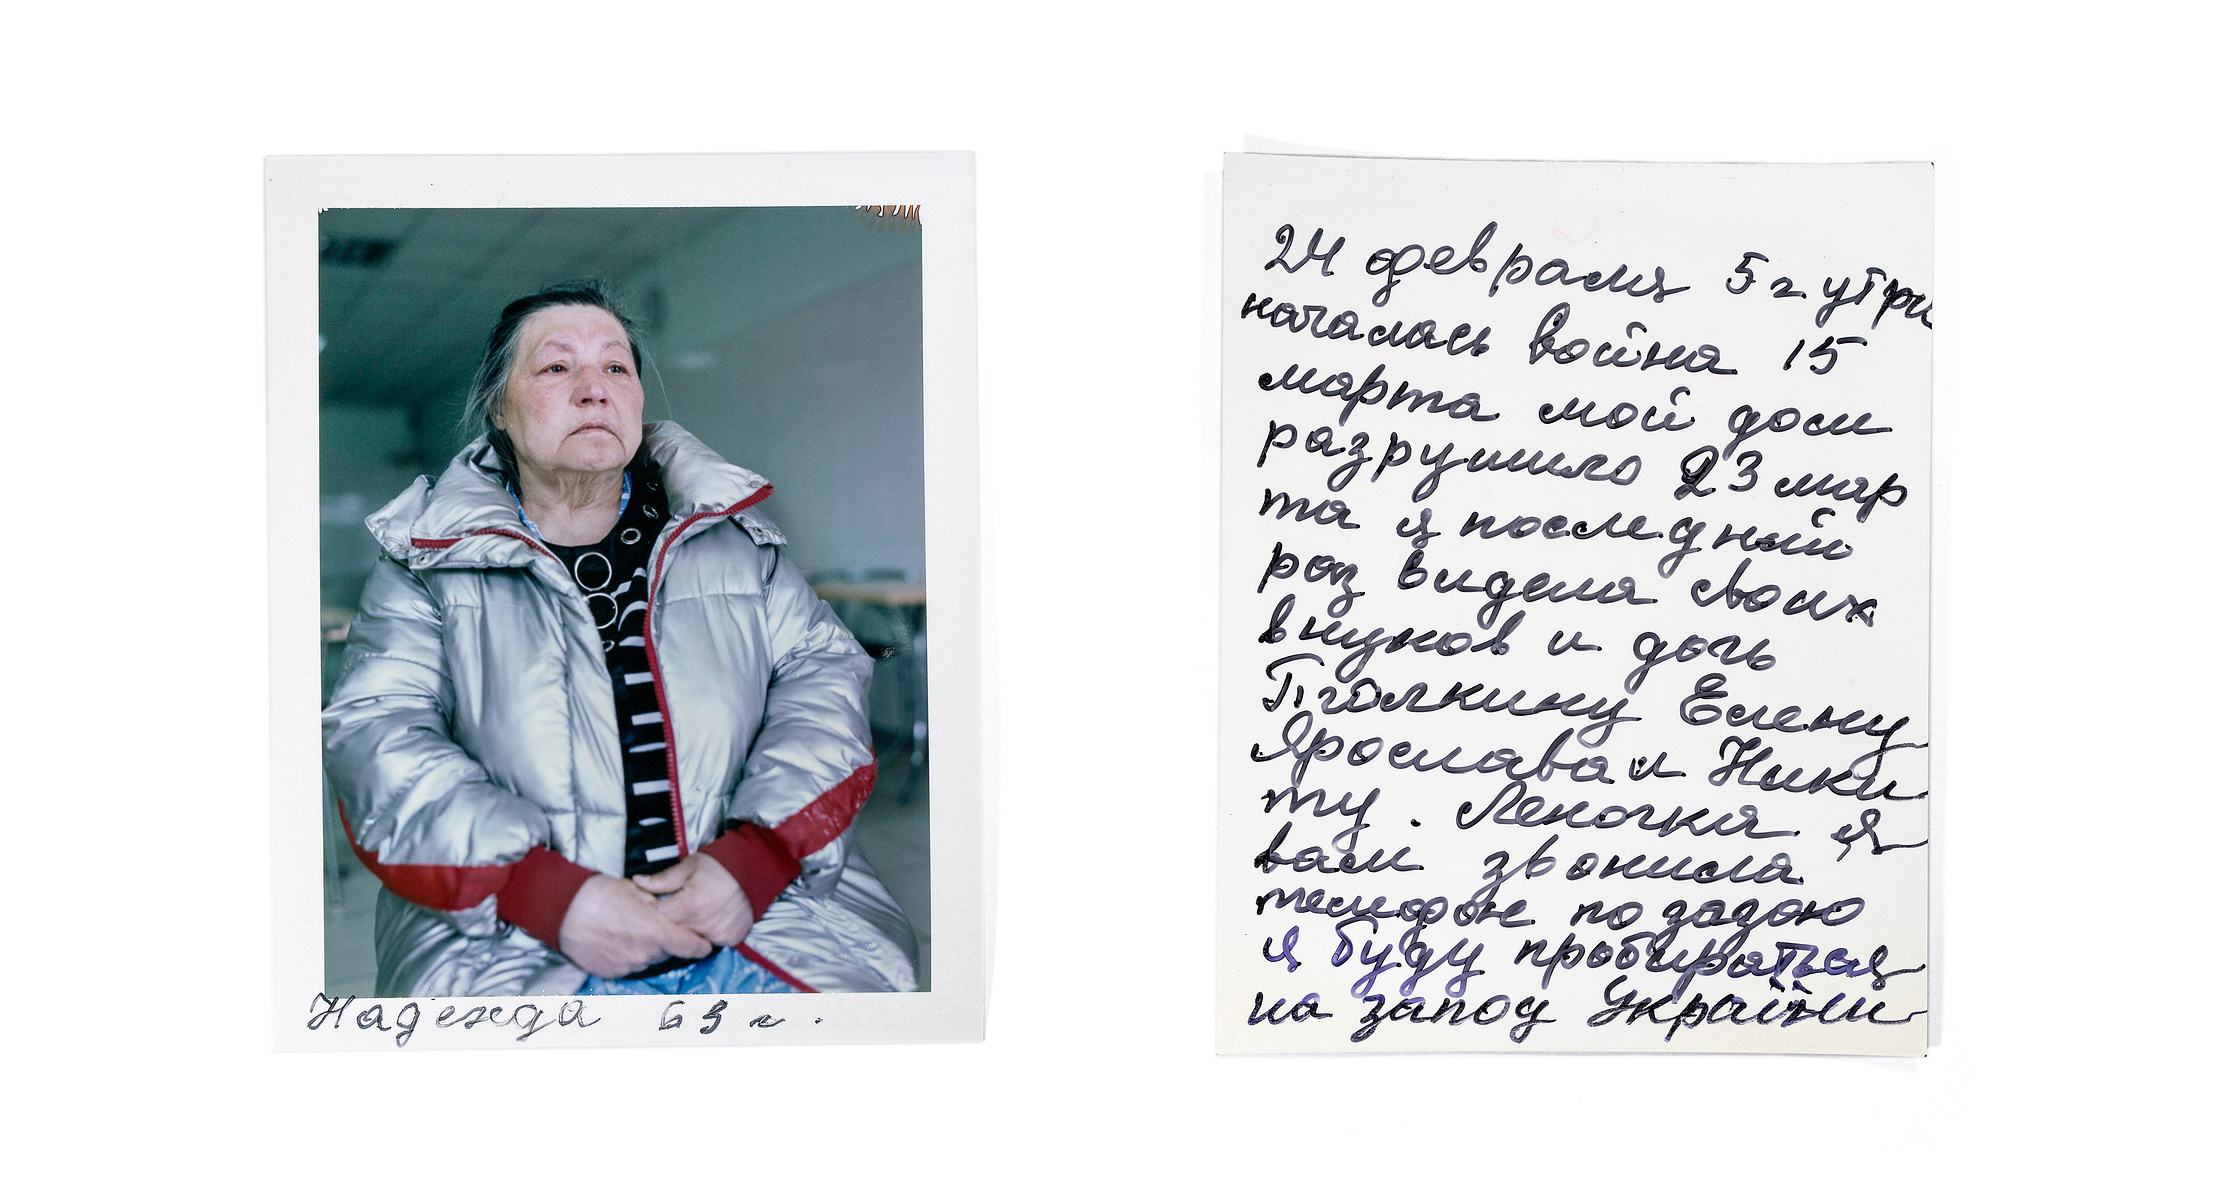 Надежда 63 г.
24 февраля 5 г. утра
началась война 15
марта мой дом
разрушило 23 мар
та я последний
раз видела своих
внуков и дочь
Пчолкину Елену
Ярослава и Ники
ту. Леночка я
вам звонила
телефон
я буду пробираться
на запод Украіни